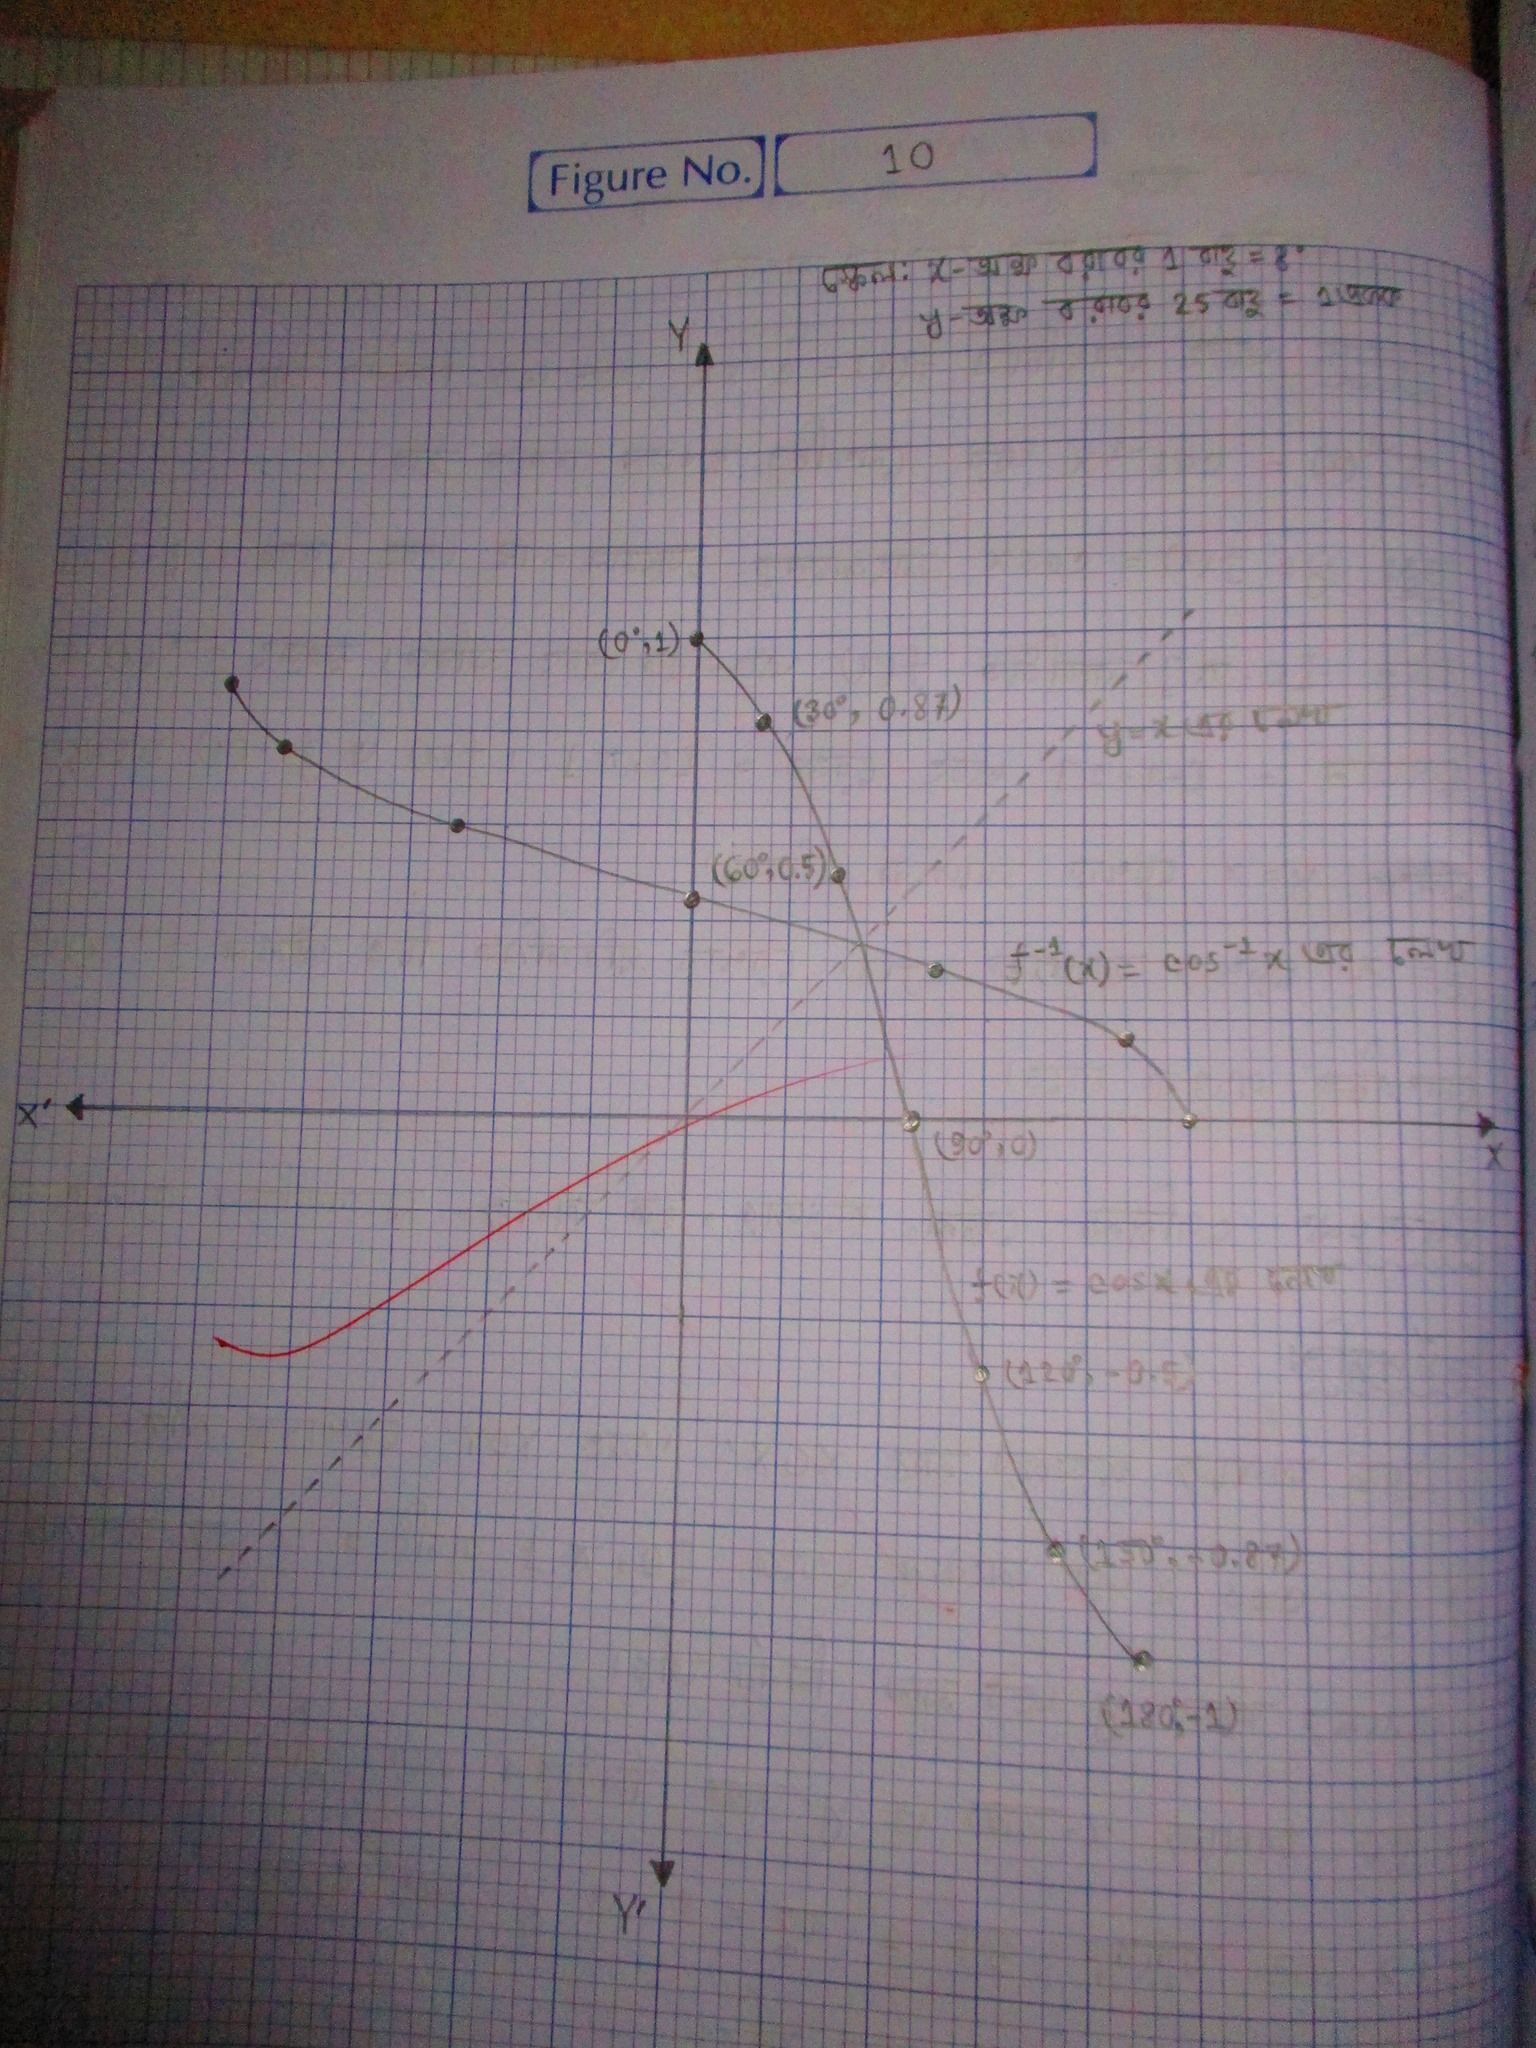 Figure No. 10
স্কেল: x-অক্ষ বরাবর 1 বাহু = 8°
y-অক্ষ বরাবর 25 বাহু = 1 একক
Y
(0°, 1)
(30°, 0.87)
y=x এর লেখ
(60°, 0.5)
f⁻¹(x) = cos⁻¹x এর লেখ
X'
X
(90°, 0)
f(x) = cosx এর লেখ
(120°, -0.5)
(150°, -0.87)
(180°, -1)
Y'